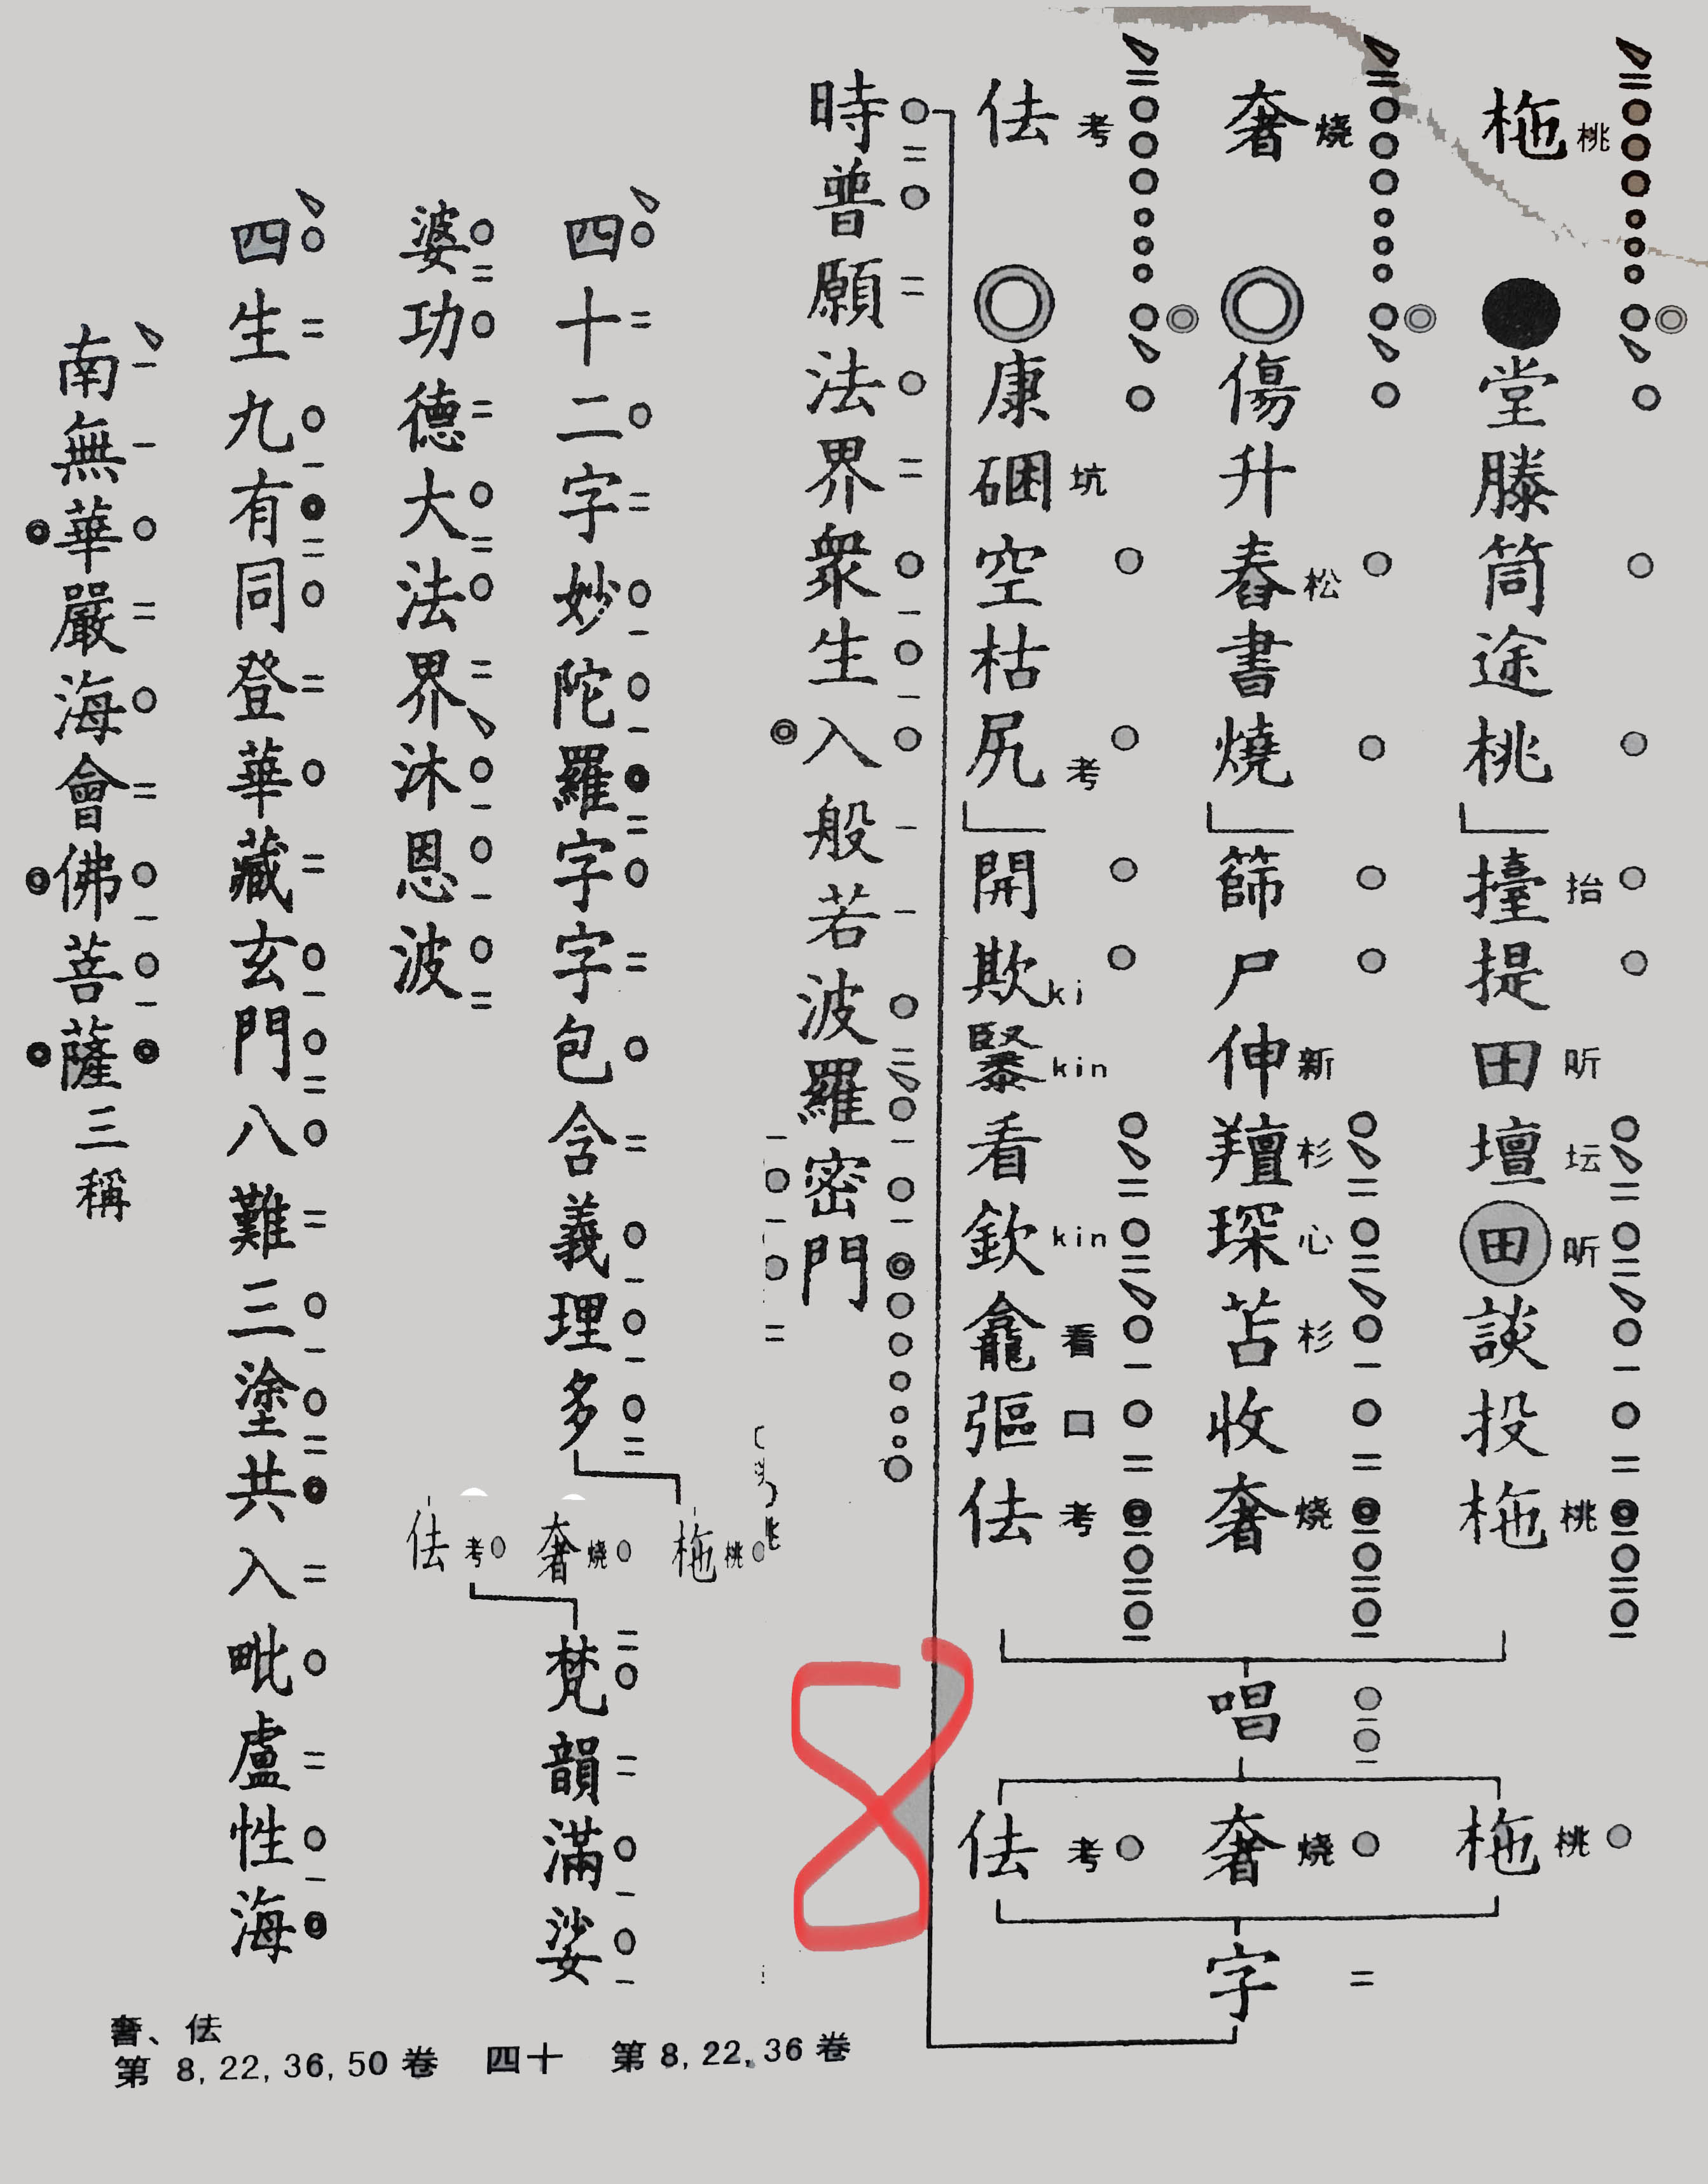 柂 桃
堂滕筒途桃
擡 抬
提
田 昕
壇 坛
田 昕
談投
柂 桃
奢 燒
傷升
舂 松
書燒
篩尸
伸 新
羶 杉
琛 心
苫 杉
收
奢 燒
佉 考
康
硱 坑
空枯
尻 考
開
欺 ki
緊 kin
看
欽 kin
龕 看
彄 口
佉 考
唱
柂 桃
奢 燒
佉 考
字
時普願法界衆生入般若波羅密門
8
四十二字妙陀羅字字包含義理多
柂 桃
奢 燒
佉 考
梵韻滿娑
婆功德大法界沐恩波
四生九有同登華藏玄門八難三塗共入毗盧性海
南無華嚴海會佛菩薩三稱
奢、佉
第 8, 22, 36, 50 卷 四十 第 8, 22, 36 卷